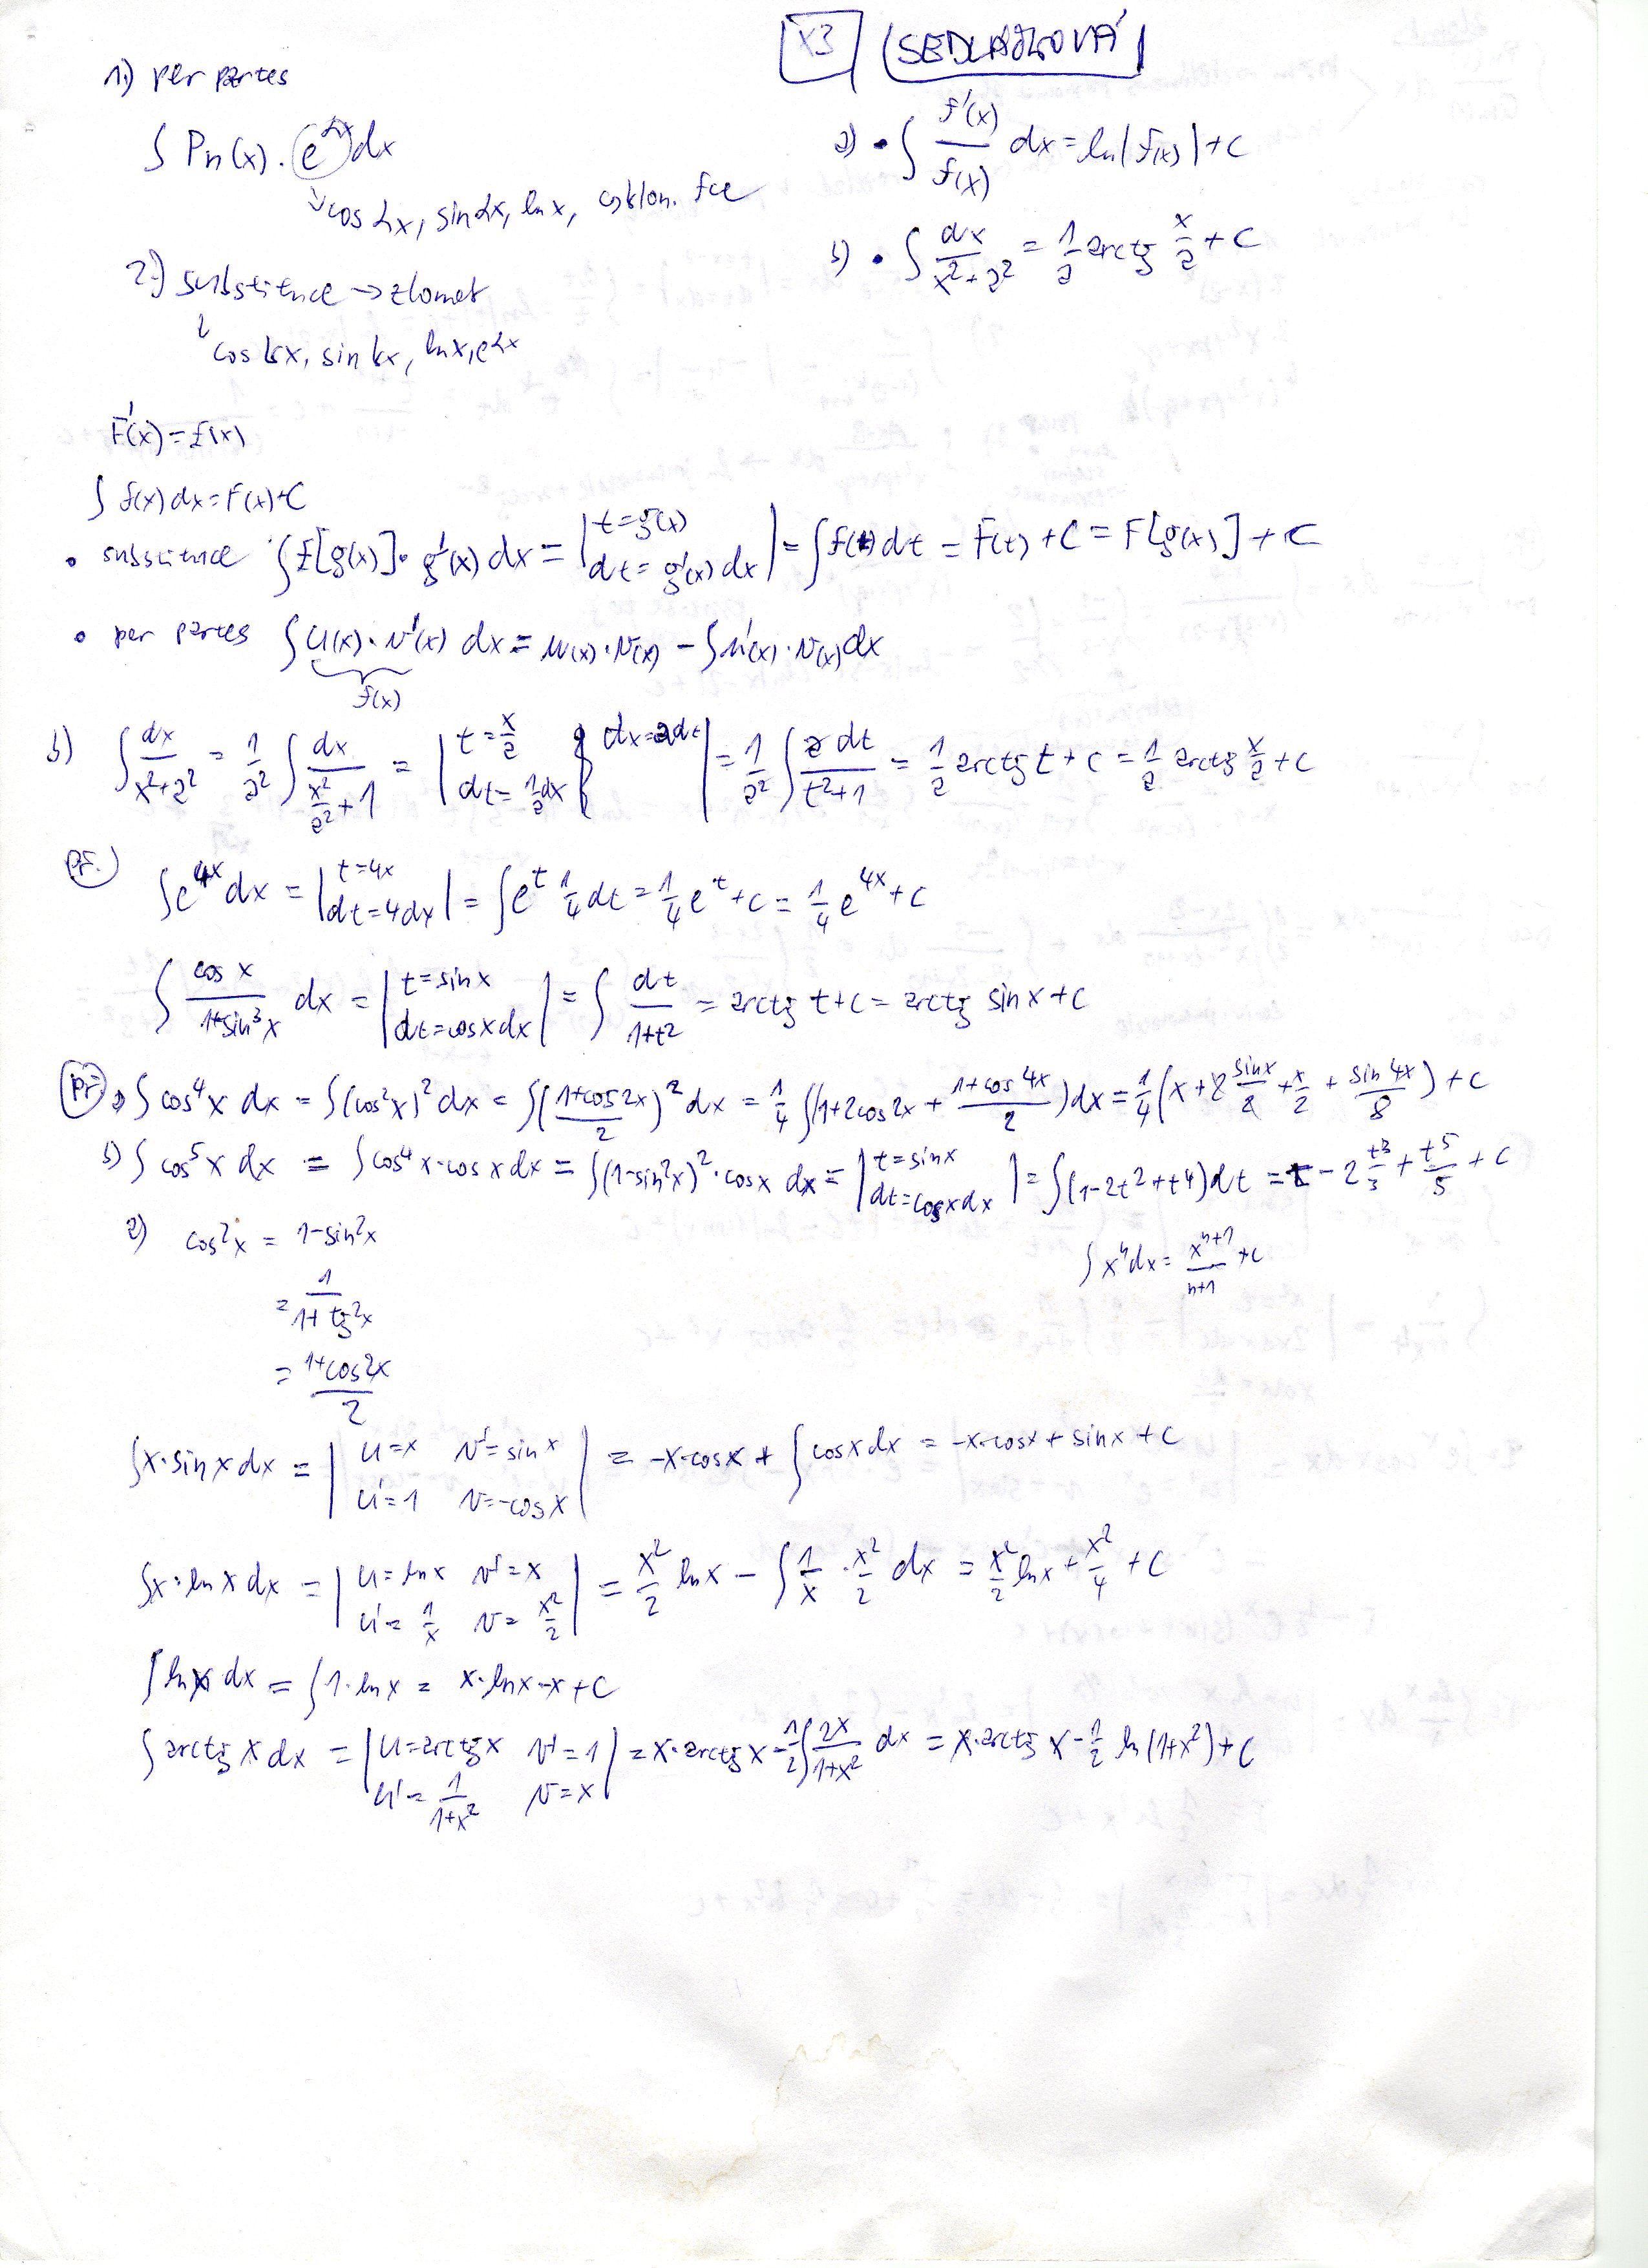 X3 (SEDLÁČKOVÁ)
1.) per partes
∫ Pn(x) · e^αx dx
↳ cos αx, sin αx, ln x, cyklom. fce
a) • ∫ f'(x)/f(x) dx = ln|f(x)| + c
b) • ∫ dx/(x²+a²) = 1/a arctg x/a + c
2.) substituce → zlomet
cos kx, sin kx, ln x, e^αx
F'(x) = f(x)
∫ f(x) dx = F(x) + C
• substituce ∫ f[g(x)] · g'(x) dx = | t = g(x) dt = g'(x) dx | = ∫ f(t) dt = F(t) + C = F[g(x)] + C
• per partes ∫ u(x) · v'(x) dx = u(x) · v(x) − ∫ u'(x) · v(x) dx
f(x)
b) ∫ dx/(x²+a²) = 1/a² ∫ dx/(x²/a² + 1) = | t = x/a dt = 1/a dx } dx = a dt | = 1/a² ∫ a dt/(t²+1) = 1/a arctg t + c = 1/a arctg x/a + c
Př.) ∫ e^4x dx = | t = 4x dt = 4dx | = ∫ e^t 1/4 dt = 1/4 e^t + c = 1/4 e^4x + c
∫ cos x/(1+sin³x) dx = | t = sin x dt = cos x dx | = ∫ dt/(1+t²) = arctg t + c = arctg sin x + c
Př. a) ∫ cos⁴x dx = ∫ (cos²x)² dx = ∫ ((1+cos 2x)/2)² dx = 1/4 ∫ (1 + 2cos 2x + (1+cos 4x)/2) dx = 1/4 (x + 2 sin x/2 + x/2 + sin 4x/8) + c
b) ∫ cos⁵x dx = ∫ cos⁴x · cos x dx = ∫ (1−sin²x)² · cos x dx = | t = sin x dt = cos x dx | = ∫ (1−2t²+t⁴) dt = t − 2 t³/3 + t⁵/5 + c
a) cos²x = 1−sin²x
∫ xⁿ dx = x^(n+1)/(n+1) + c
= 1/(1+tg²x)
= (1+cos 2x)/2
∫ x · sin x dx = | u = x v' = sin x u' = 1 v = −cos x | = −x·cos x + ∫ cos x dx = −x·cos x + sin x + c
∫ x · ln x dx = | u = ln x v' = x u' = 1/x v = x²/2 | = x²/2 ln x − ∫ 1/x · x²/2 dx = x²/2 ln x + x²/4 + c
∫ ln x dx = ∫ 1 · ln x = x · ln x − x + c
∫ arctg x dx = | u = arctg x v' = 1 u' = 1/(1+x²) v = x | = x · arctg x − 1/2 ∫ 2x/(1+x²) dx = x · arctg x − 1/2 ln (1+x²) + c